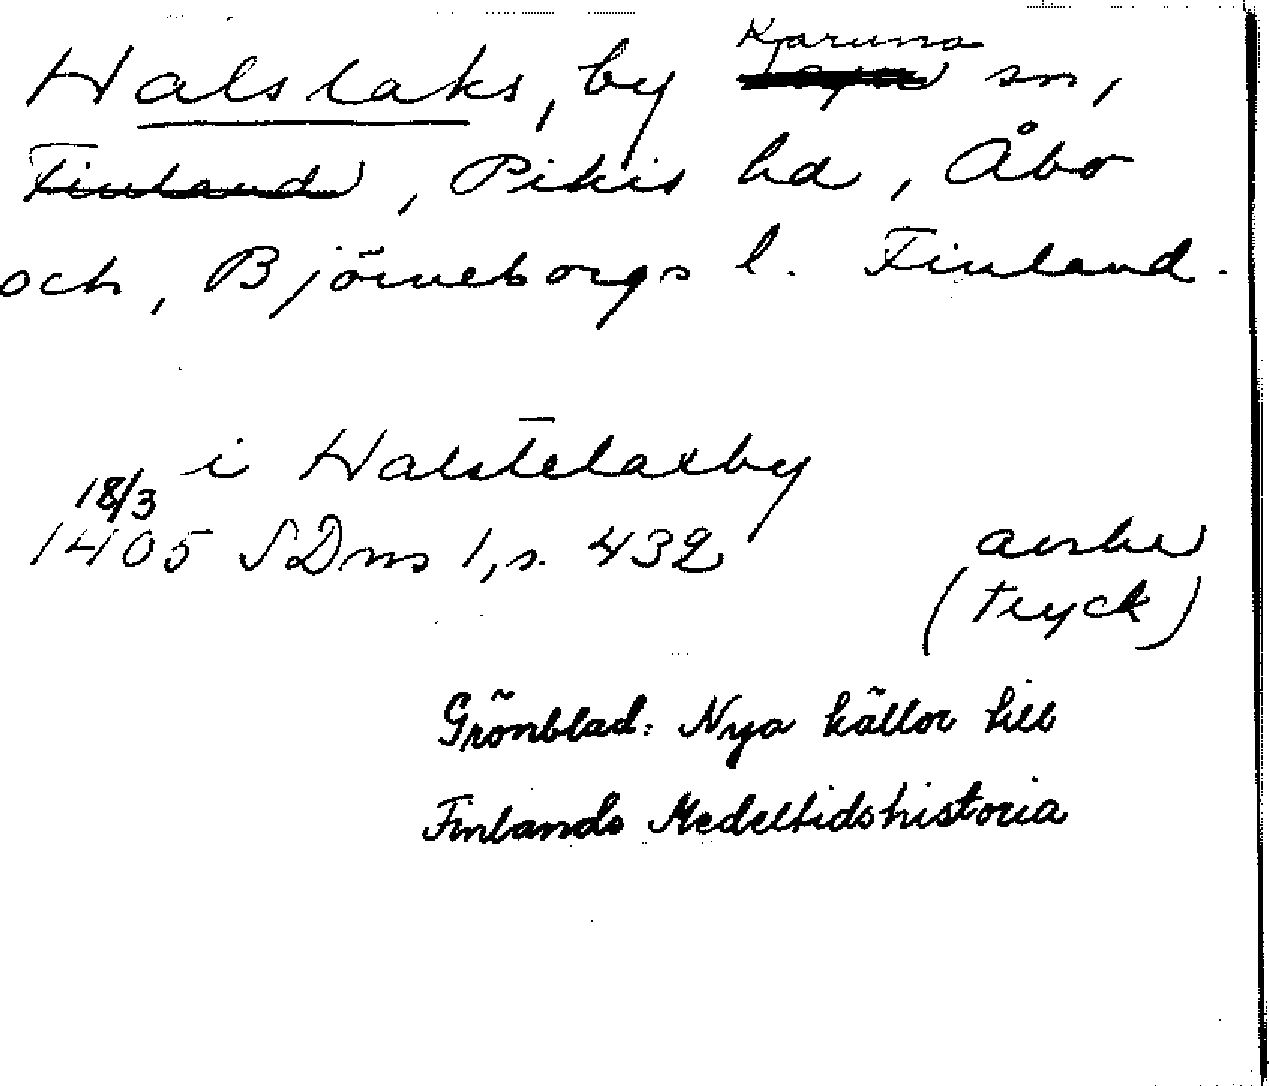 Halslaks, by Karuna sn,
Finland, Pikis hd, Åbo
och, Björneborgs l. Finland.
i Halstelaxby
18/3
1405 SDns 1, s. 432
avskr
(tryck)
Grönblad: Nya källor till
Finlands Medeltidshistoria